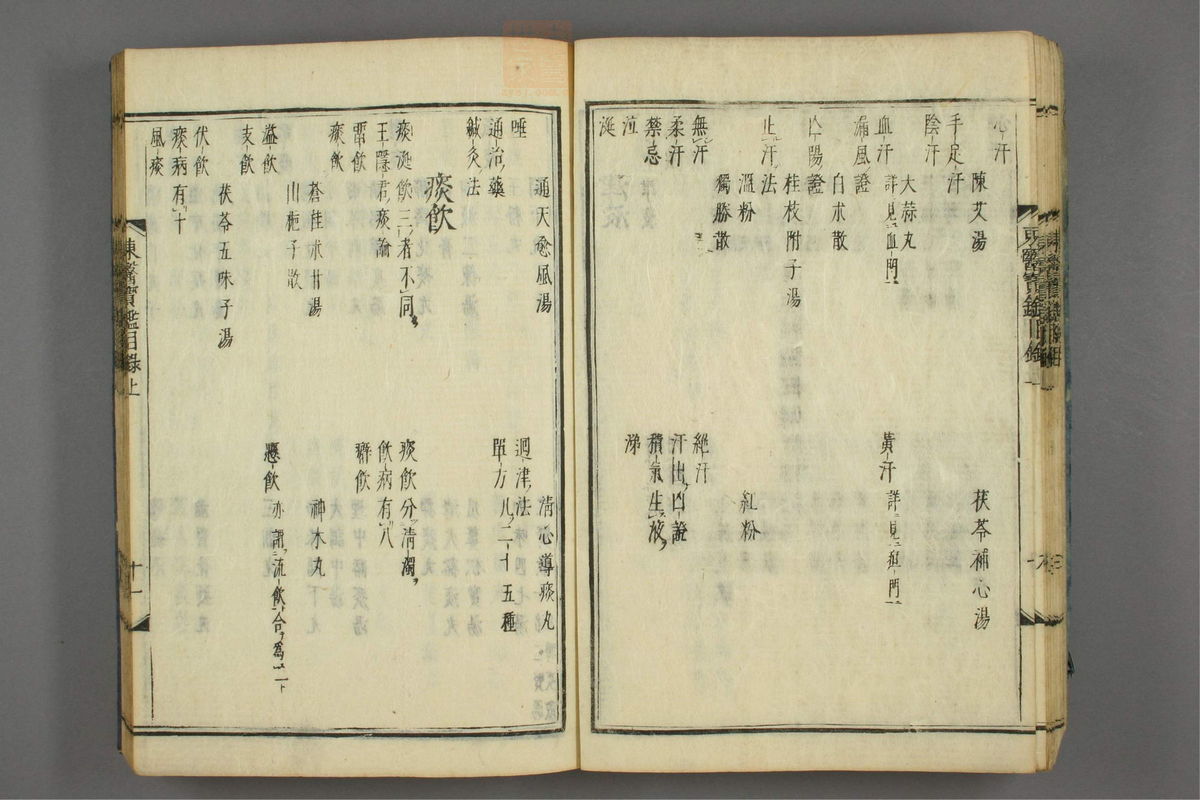 心汗
陳艾湯
茯苓補心湯
手足汗
陰汗
大蒜丸
血汗
詳見血門
黃汗
詳見疸門
漏風證
白朮散
亡陽證
桂枝附子湯
止汗法
溫粉
紅粉
獨勝散
無汗
絕汗
柔汗
汗出凶證
禁忌
積氣生液
泣
涕
涎
唾
通天愈風湯
清心導痰丸
廻津法
通治藥
單方凡二十五種
鍼灸法
痰飮
痰涎飮三者不同
痰飮分淸濁
王隱君痰論
飮病有八
留飮
癖飮
痰飮
蒼桂朮甘湯
神朮丸
山梔子散
溢飮
懸飮
亦謂流飮合爲一
支飮
茯苓五味子湯
伏飮
痰病有十
風痰
東醫寶鑑目錄上
十一